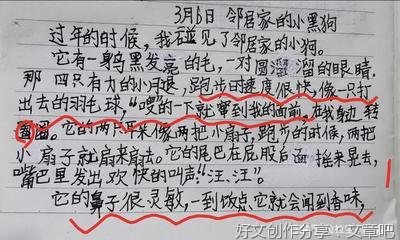 3月6日 邻居家的小黑狗
过年的时候，我碰见了邻居家的小狗。
它有一身乌黑发亮的毛，一对圆溜溜的眼睛.
那四只有力的小腿，跑步的速度很快，像一只打
出去的羽毛球，“嗖的一下就窜到我的面前，在我身边转
圈圈。它的两只耳朵像两把小扇子，跑步的时候，两把
小扇子就扇来扇去。它的尾巴在屁股后面摇来晃去，
嘴巴里发出欢快的叫声：“汪、汪”。
它的鼻子很灵敏，一到饭点它就会闻到香味，
好文创作分享 文章吧